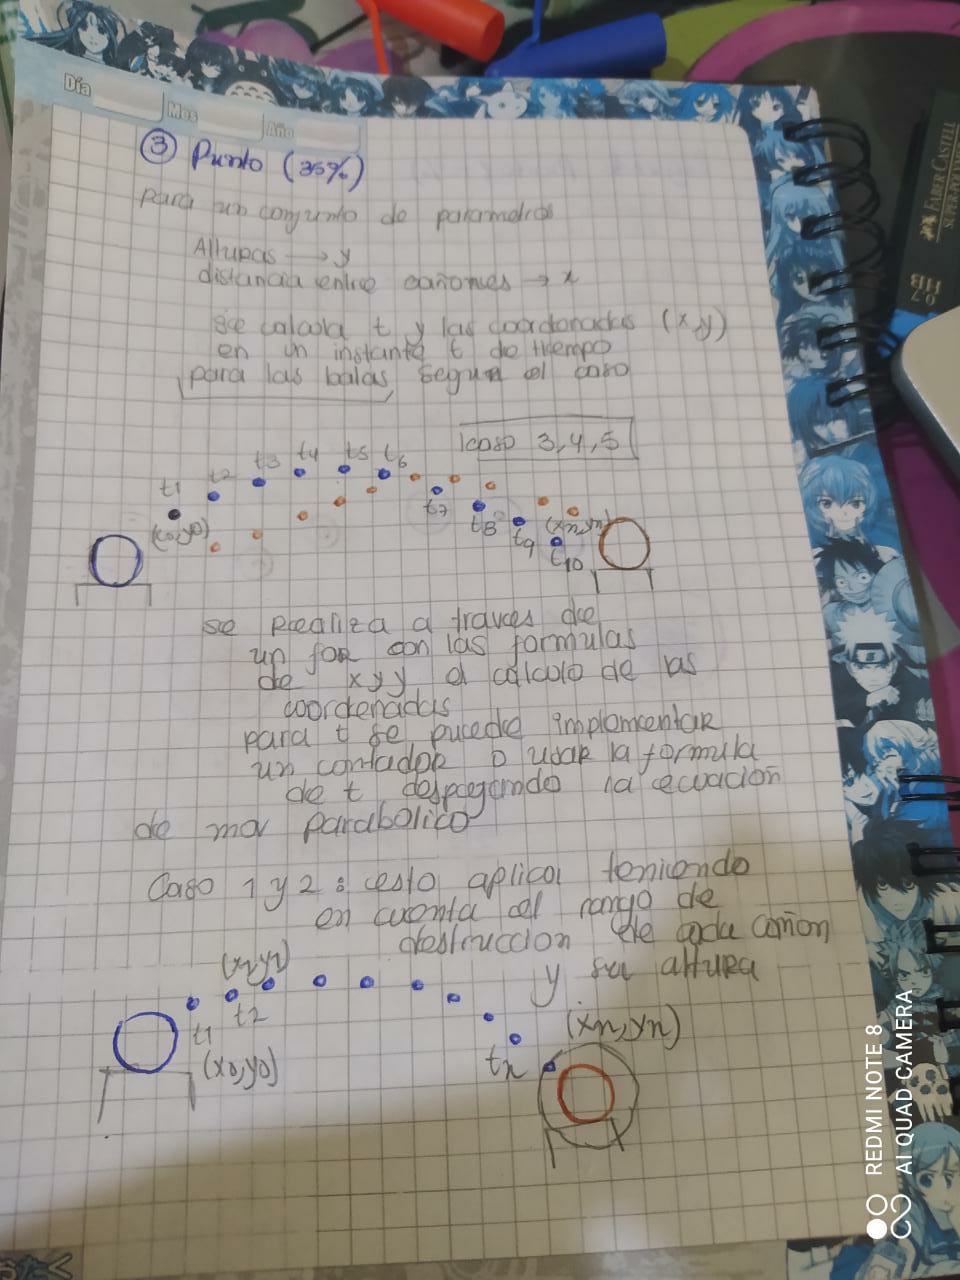 Día
Mes
Año
③ Punto (35%)
para un conjunto de parametros
Alturas → y
distancia entre cañones → x
se calcula t y las coordenadas (x,y)
en un instante t de tiempo
para las balas, segun el caso
caso 3,4,5
t1 t2 t3 t4 t5 t6
(x0,y0)
t7 t8 t9 t10
(xn,yn)
se realiza a traves de
un for con las formulas
de x y y el calculo de las
coordenadas
para t se puede implementar
un contador o usar la formula
de t despegando la ecuación
de mov parabolico
Caso 1 y 2 : esto aplica teniendo
en cuenta el rango de
destruccion de cada cañon
y su altura
t1
(x0,y0)
t2
tn
(xn,yn)
FABER CASTELL
0.7
HB
REDMI NOTE 8
AI QUAD CAMERA